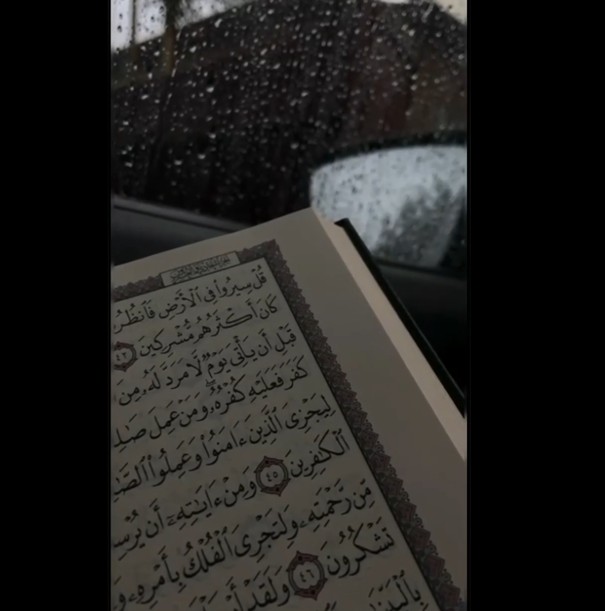 قُلْ سِيرُوا۟ فِى ٱلْأَرْضِ فَٱنظُرُ
كَانَ أَكْثَرُهُم مُّشْرِكِينَ ٤٢
قَبْلِ أَن يَأْتِىَ يَوْمٌ لَّا مَرَدَّ لَهُۥ مِنَ
كَفَرَ فَعَلَيْهِ كُفْرُهُۥ وَمَنْ عَمِلَ صَـٰلِ
لِيَجْزِىَ ٱلَّذِينَ ءَامَنُوا۟ وَعَمِلُوا۟ ٱلصَّـٰ
ٱلْكَـٰفِرِينَ ٤٥ وَمِنْ ءَايَـٰتِهِۦٓ أَن يُرْسِ
مِّن رَّحْمَتِهِۦ وَلِتَجْرِىَ ٱلْفُلْكُ بِأَمْرِهِۦ وَ
تَشْكُرُونَ ٤٦ وَلَقَدْ أَرْ
بِٱلْبَيِّنَـ